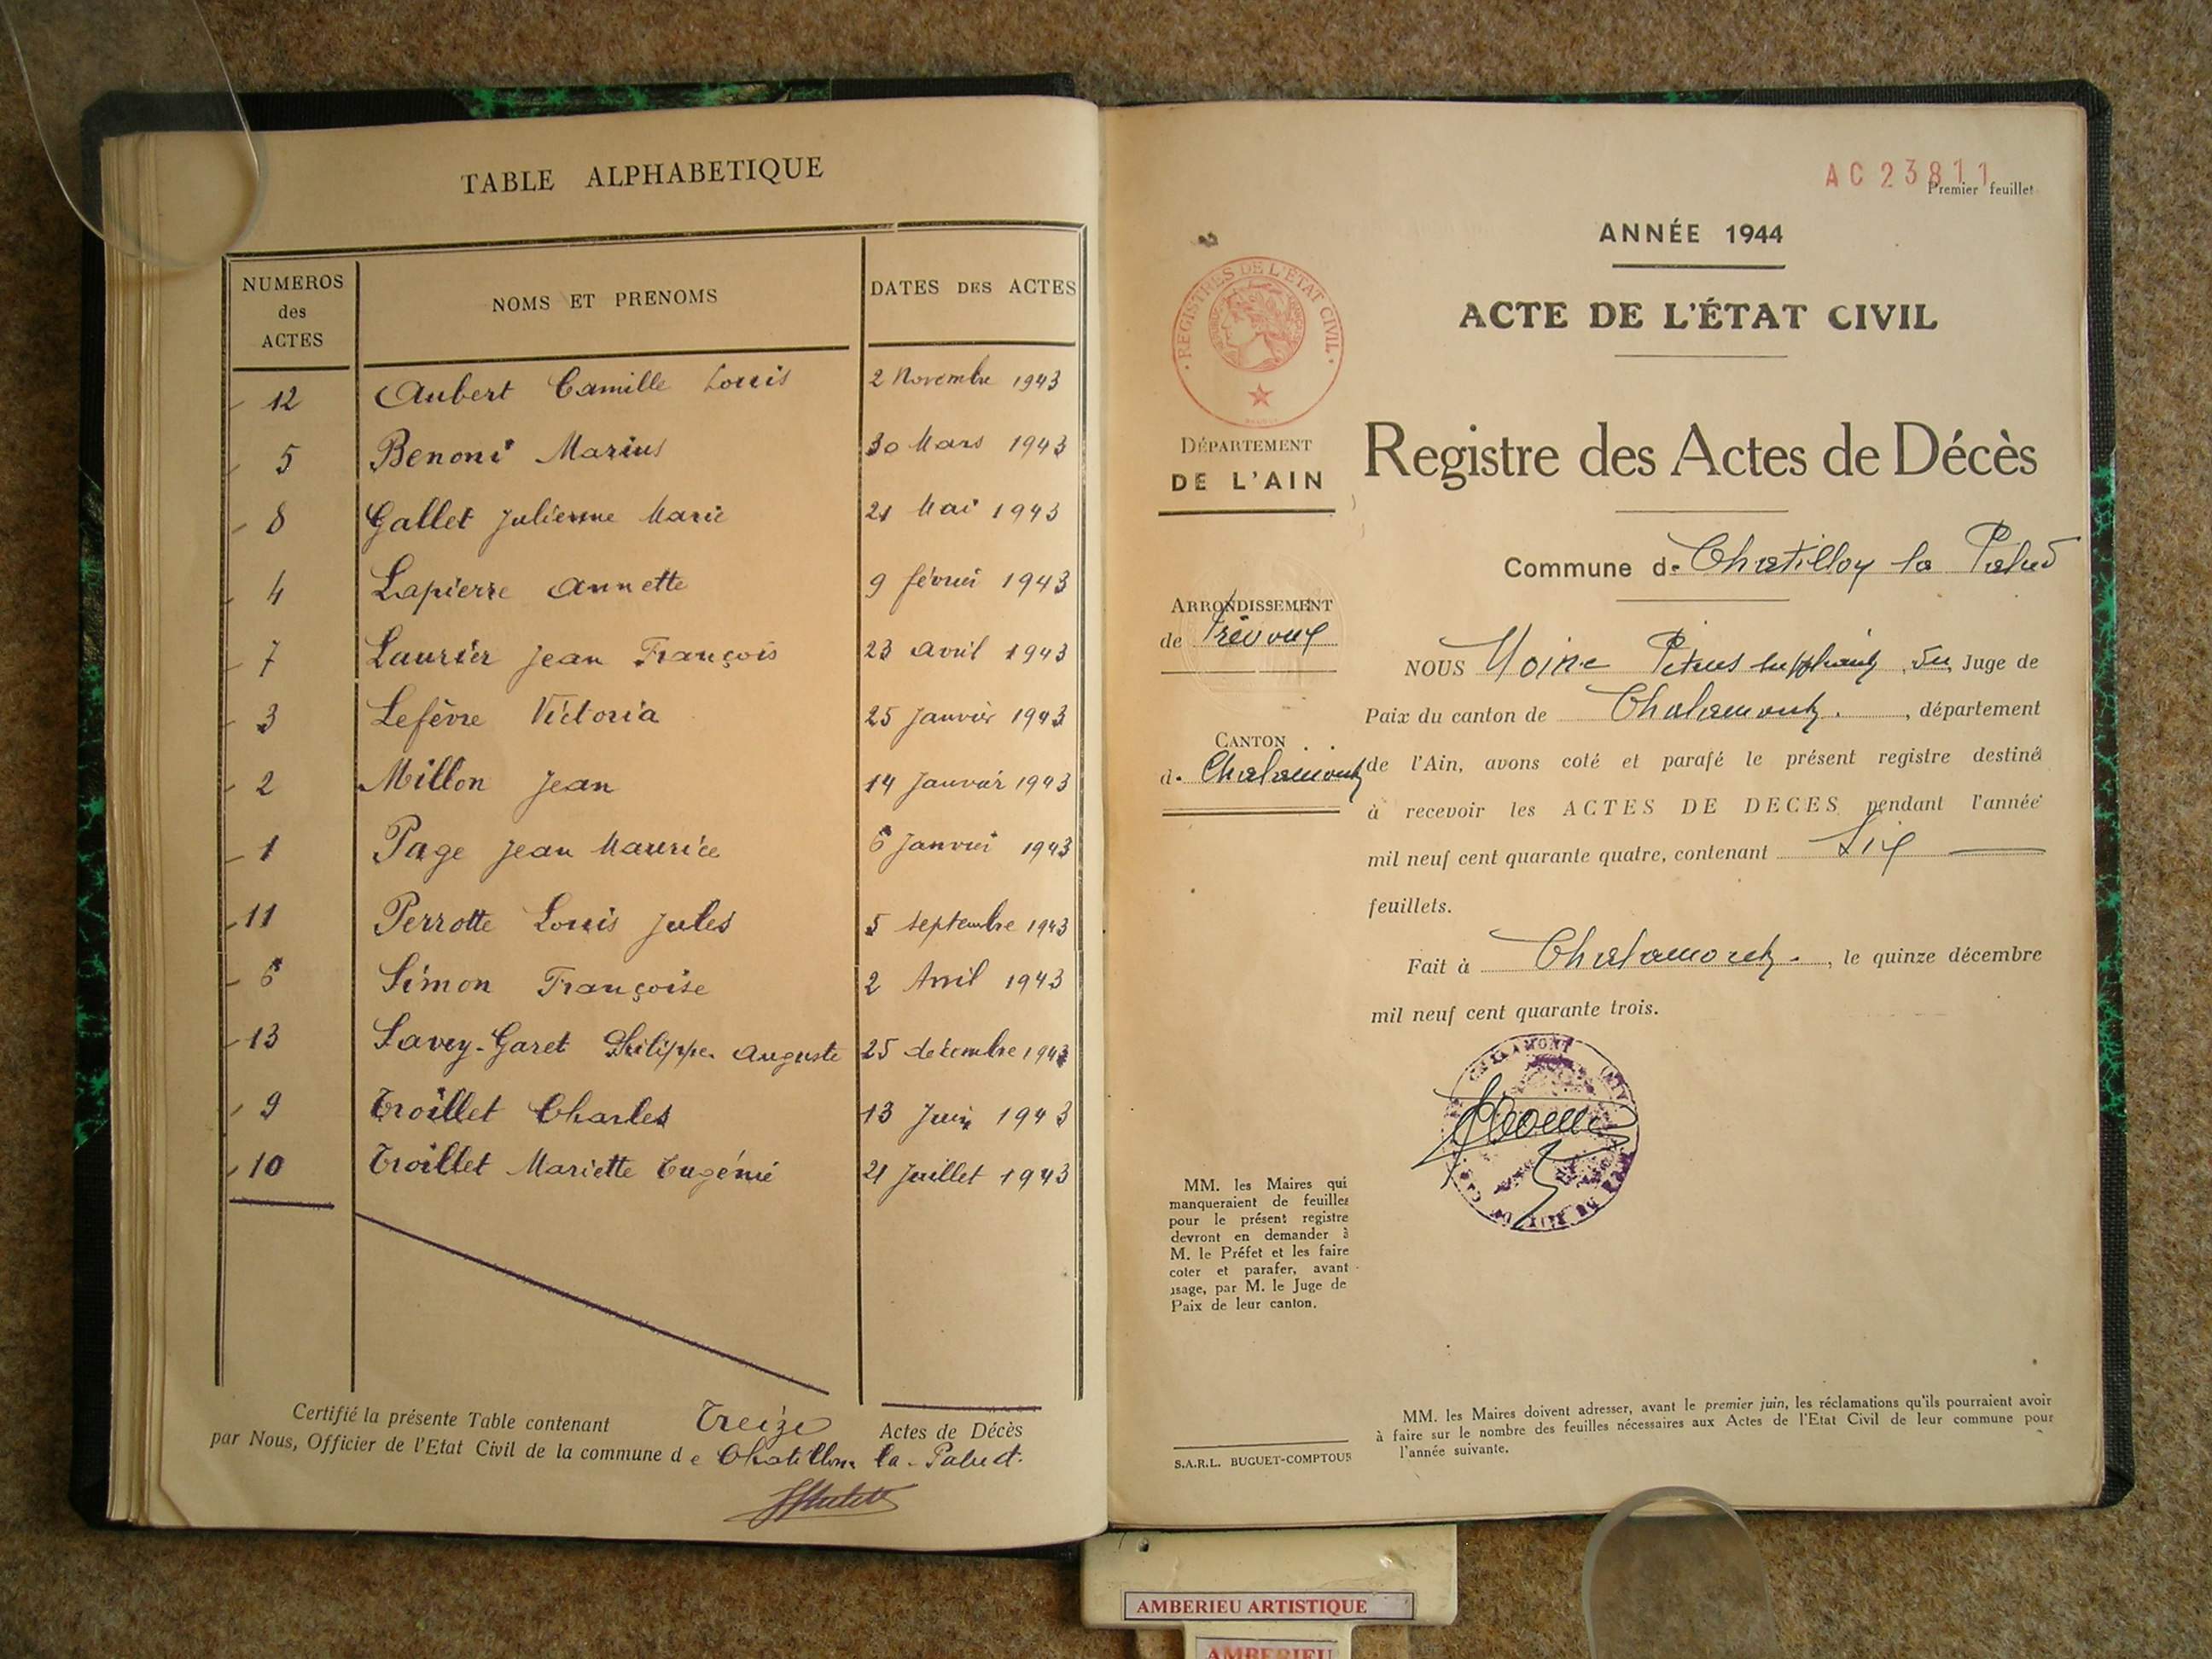 TABLE ALPHABETIQUE
NUMEROS des ACTES
NOMS ET PRENOMS
DATES DES ACTES
12 Aubert Camille Louis 2 Novembre 1943
5 Benoni Marius 30 Mars 1943
8 Gallet Julienne Marie 21 Mai 1943
4 Lapierre Annette 9 février 1943
7 Laurier Jean François 23 avril 1943
3 Lefèvre Victoria 25 Janvier 1943
2 Millon Jean 14 Janvier 1943
1 Page Jean Maurice 6 Janvier 1943
11 Perrotte Louis Jules 5 septembre 1943
6 Simon Françoise 2 Avril 1943
13 Savey-Garet Philippe Auguste 25 décembre 1943
9 Troillet Charles 13 Juin 1943
10 Troillet Mariette Eugénie 21 Juillet 1943
Certifié la présente Table contenant Treize Actes de Décès
par Nous, Officier de l'Etat Civil de la commune de Chatillon la-Palud.
AC 23811
Premier feuillet
ANNÉE 1944
ACTE DE L'ÉTAT CIVIL
REGISTRES DE L'ÉTAT CIVIL
DÉPARTEMENT
DE L'AIN
Registre des Actes de Décès
Commune de Chatillon la Palud
ARRONDISSEMENT
de Trévoux
CANTON
de Chalamont
NOUS Moine Pétrus suppléant du Juge de
Paix du canton de Chalamont, département
de l'Ain, avons coté et parafé le présent registre destiné
à recevoir les ACTES DE DECES pendant l'année
mil neuf cent quarante quatre, contenant Six
feuillets.
Fait à Chalamont, le quinze décembre
mil neuf cent quarante trois.
CHALAMONT (AIN)
MM. les Maires qui
manqueraient de feuilles
pour le présent registre
devront en demander à
M. le Préfet et les faire
coter et parafer, avant
usage, par M. le Juge de
Paix de leur canton.
S.A.R.L. BUGUET-COMPTOUR
MM. les Maires doivent adresser, avant le premier juin, les réclamations qu'ils pourraient avoir
à faire sur le nombre des feuilles nécessaires aux Actes de l'Etat Civil de leur commune pour
l'année suivante.
AMBERIEU ARTISTIQUE
AMBERIEU